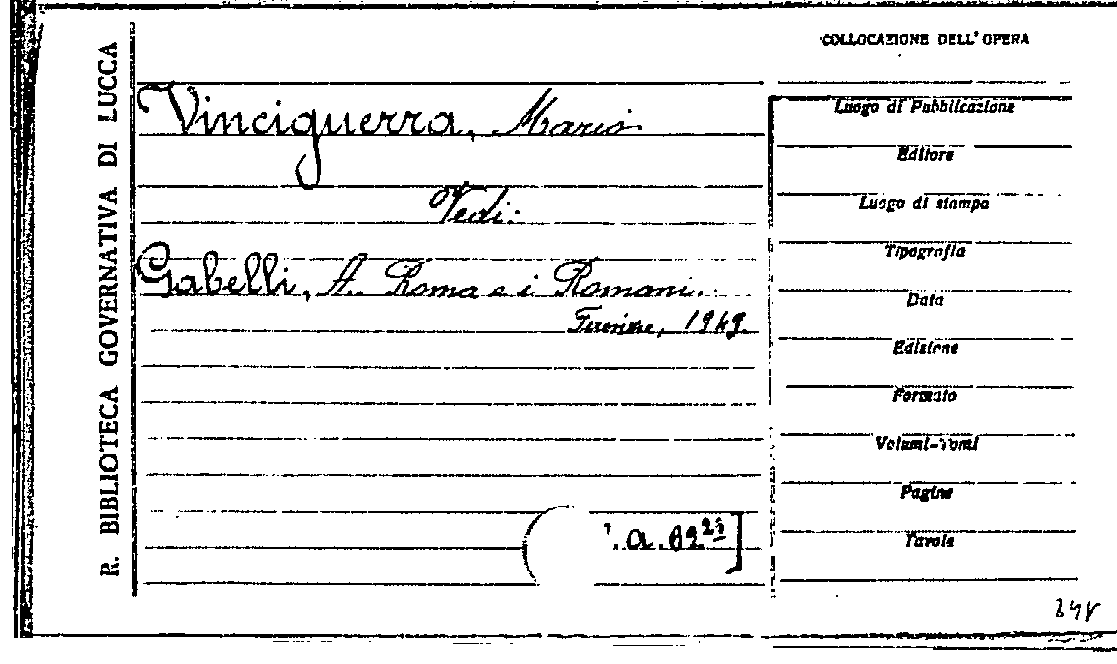 R. BIBLIOTECA GOVERNATIVA DI LUCCA
Vinciguerra, Mario
Vedi:
Gabelli, A. Roma e i Romani.
Firenze, 1949.
.a.82
COLLOCAZIONE DELL'OPERA
Luogo di Pubblicazione
Editore
Luogo di stampa
Tipografia
Data
Edizione
Formato
Volumi-Tomi
Pagine
Tavole